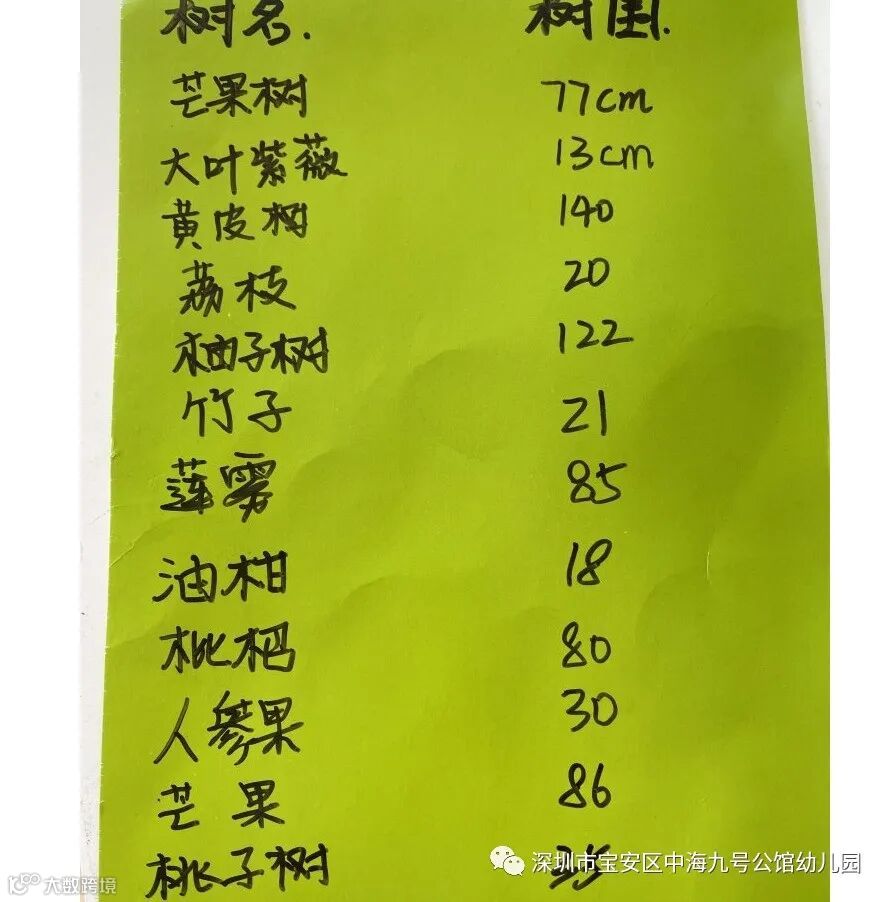 树名. 树围.
芒果树 77cm
大叶紫薇 13cm
黄皮树 140
荔枝 20
柚子树 122
竹子 21
莲雾 85
油柑 18
枇杷 80
人参果 30
芒果 86
桃子树 35
深圳市宝安区中海九号公馆幼儿园
大数跨境